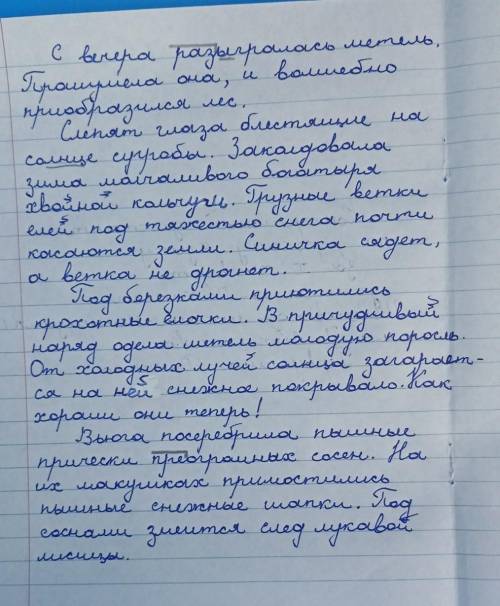 С вечера разыгралась метель.
Прошумела она, и волшебно
приобразился лес.
Слепят глаза блестящие на
солнце сугробы. Заколдовала
зима молчаливого богатыря
хвойной кольчуги. Грузные ветки
елей под тяжестью снега почти
касаются земли. Синичка сядет,
а ветка не дрогнет.
Под березками приютились
крохотные елочки. В причудливый
наряд одела метель молодую поросль.
От холодных лучей солнца загарает-
ся на ней снежное покрывало. Как
хороши они теперь!
Вьюга посеребрила пышные
прически преогромных сосен. На
их макушках примостились
пышные снежные шапки. Под
соснами змеится след лукавой
лисицы.